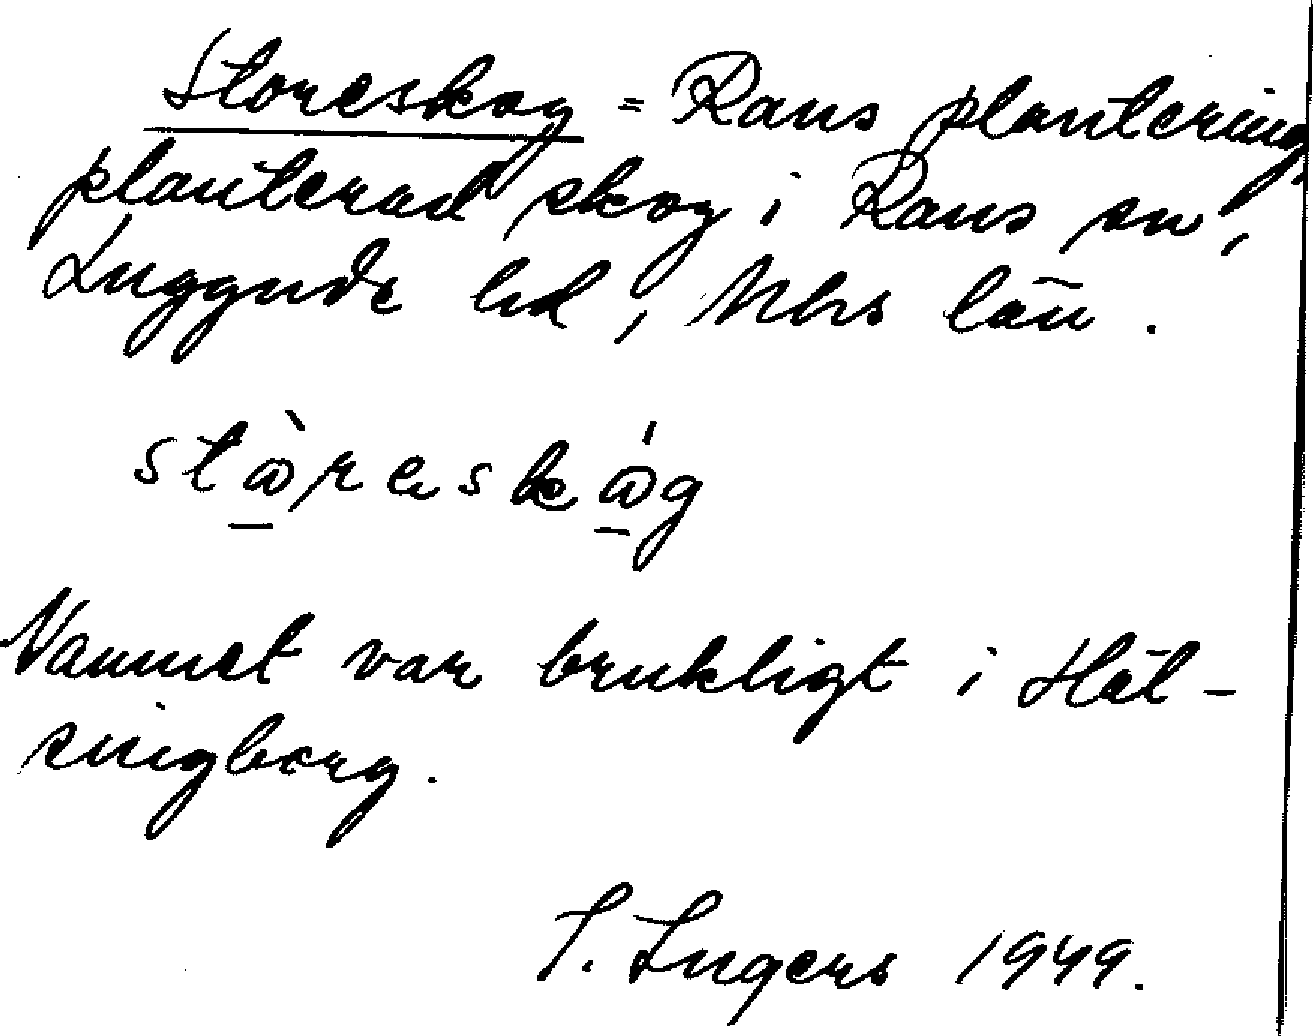 Storeskog = Raus plantering,
planterad skog i Raus sn,
Luggude hd, Mhs län.
stɷ̀reskɷ́g
Namnet var brukligt i Häl-
singborg.
I. Ingers 1949.